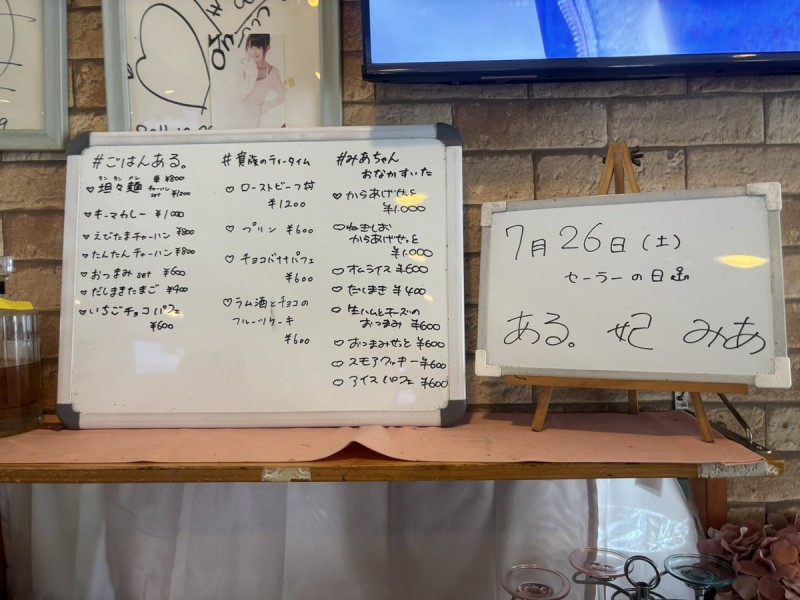 #ごはんある。
タン タン メン
坦々麺
単 ¥800
チャーハン
set ¥1200
♡キーマカレー ¥1000
♡えびたまチャーハン ¥800
♡たんたんチャーハン ¥800
♡おつまみset ¥600
♡だしまきたまご ¥400
♡いちごチョコパフェ
¥600
#貴族のティータイム
♡ローストビーフ丼
¥1200
♡プリン ¥600
♡チョコバナナパフェ
¥600
♡ラム酒とチョコの
フルーツケーキ
¥600
#みあちゃん
おなかすいた
♡からあげせっと
¥1.000
♡ねぎしお
からあげせっと
¥1.000
♡オムライス ¥600
♡だしまき ¥400
♡生ハムとチーズの
おつまみ ¥600
♡おつまみせっと ¥600
♡スモアクッキー ¥600
♡アイスパフェ ¥600
7月26日(土)
セーラーの日
ある。 妃 みあ